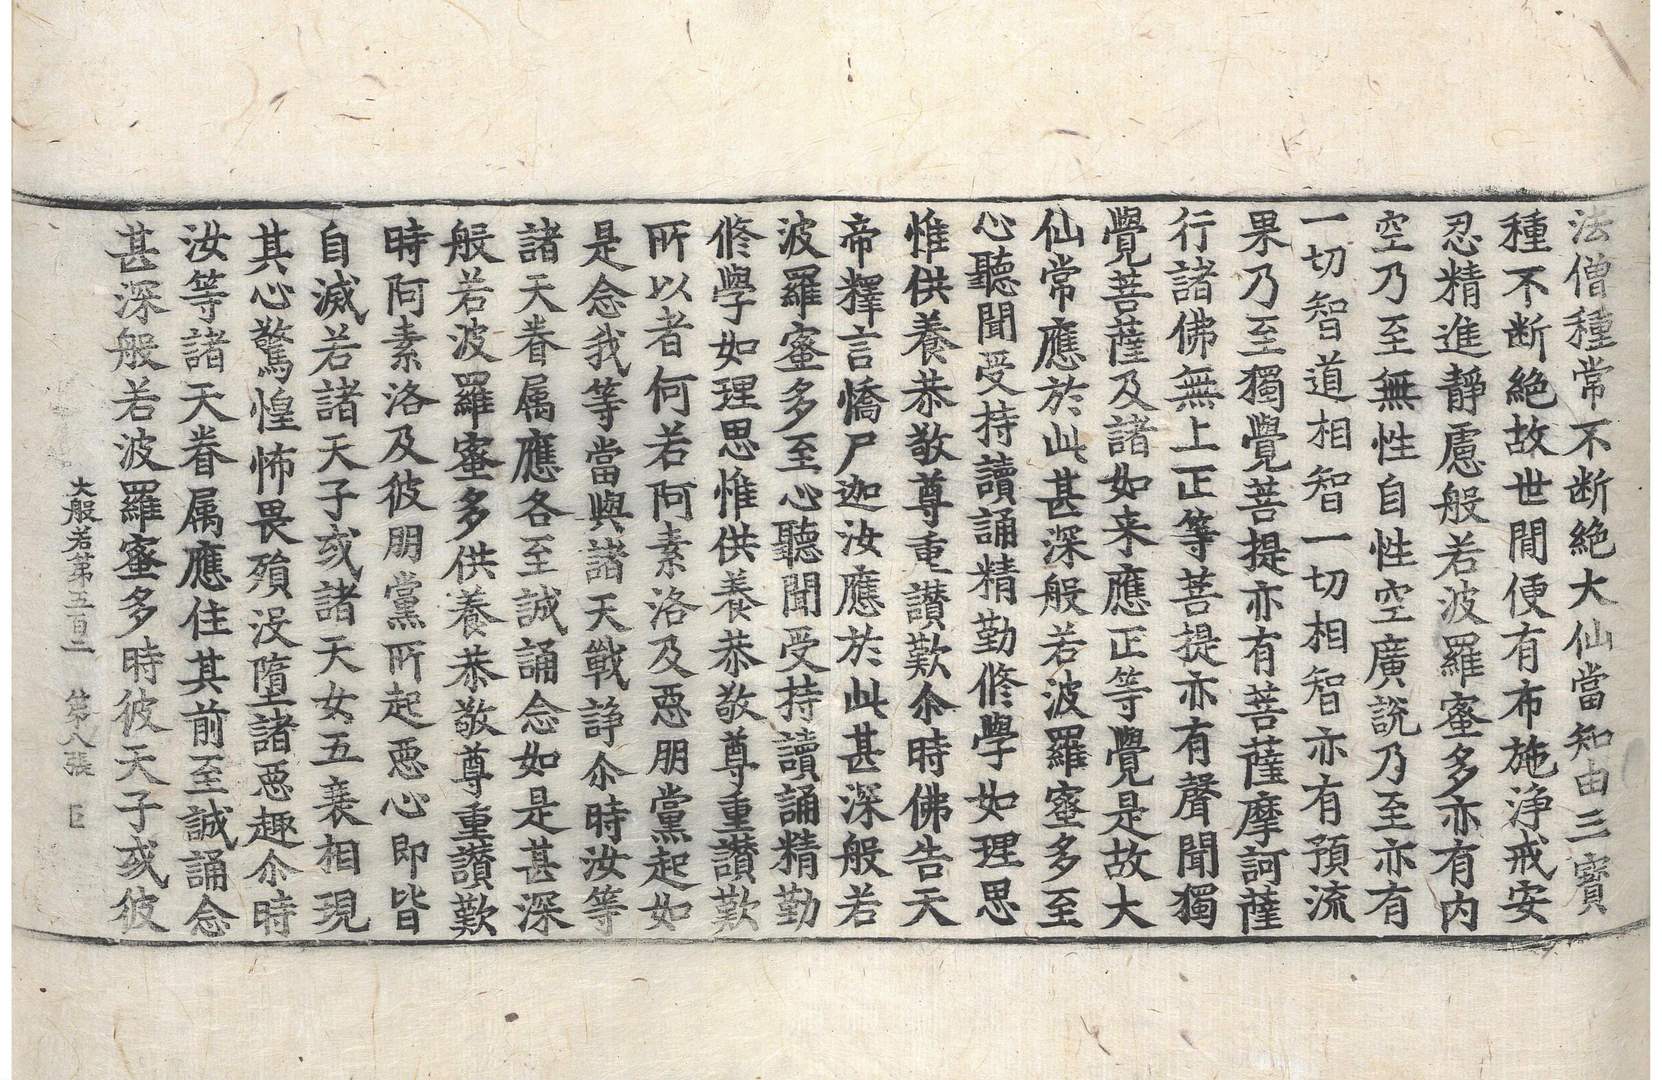 法僧種常不断絶大仙當知由三寳
種不断絶故世間便有布施浄戒安
忍精進靜慮般若波羅蜜多亦有内
空乃至無性自性空廣說乃至亦有
一切智道相智一切相智亦有預流
果乃至獨覺菩提亦有菩薩摩訶薩
行諸佛無上正等菩提亦有聲聞獨
覺菩薩及諸如来應正等覺是故大
仙常應於此甚深般若波羅蜜多至
心聽聞受持讀誦精勤修學如理思
惟供養恭敬尊重讃歎尒時佛告天
帝釋言憍尸迦汝應於此甚深般若
波羅蜜多至心聽聞受持讀誦精勤
修學如理思惟供養恭敬尊重讃歎
所以者何若阿素洛及惡朋黨起如
是念我等當與諸天戰諍尒時汝等
諸天眷属應各至誠誦念如是甚深
般若波羅蜜多供養恭敬尊重讃歎
時阿素洛及彼朋黨所起惡心即皆
自滅若諸天子或諸天女五衰相現
其心驚惶怖畏殞没墮諸惡趣尒時
汝等諸天眷属應住其前至誠誦念
甚深般若波羅蜜多時彼天子或彼
大般若第五百二 第八張